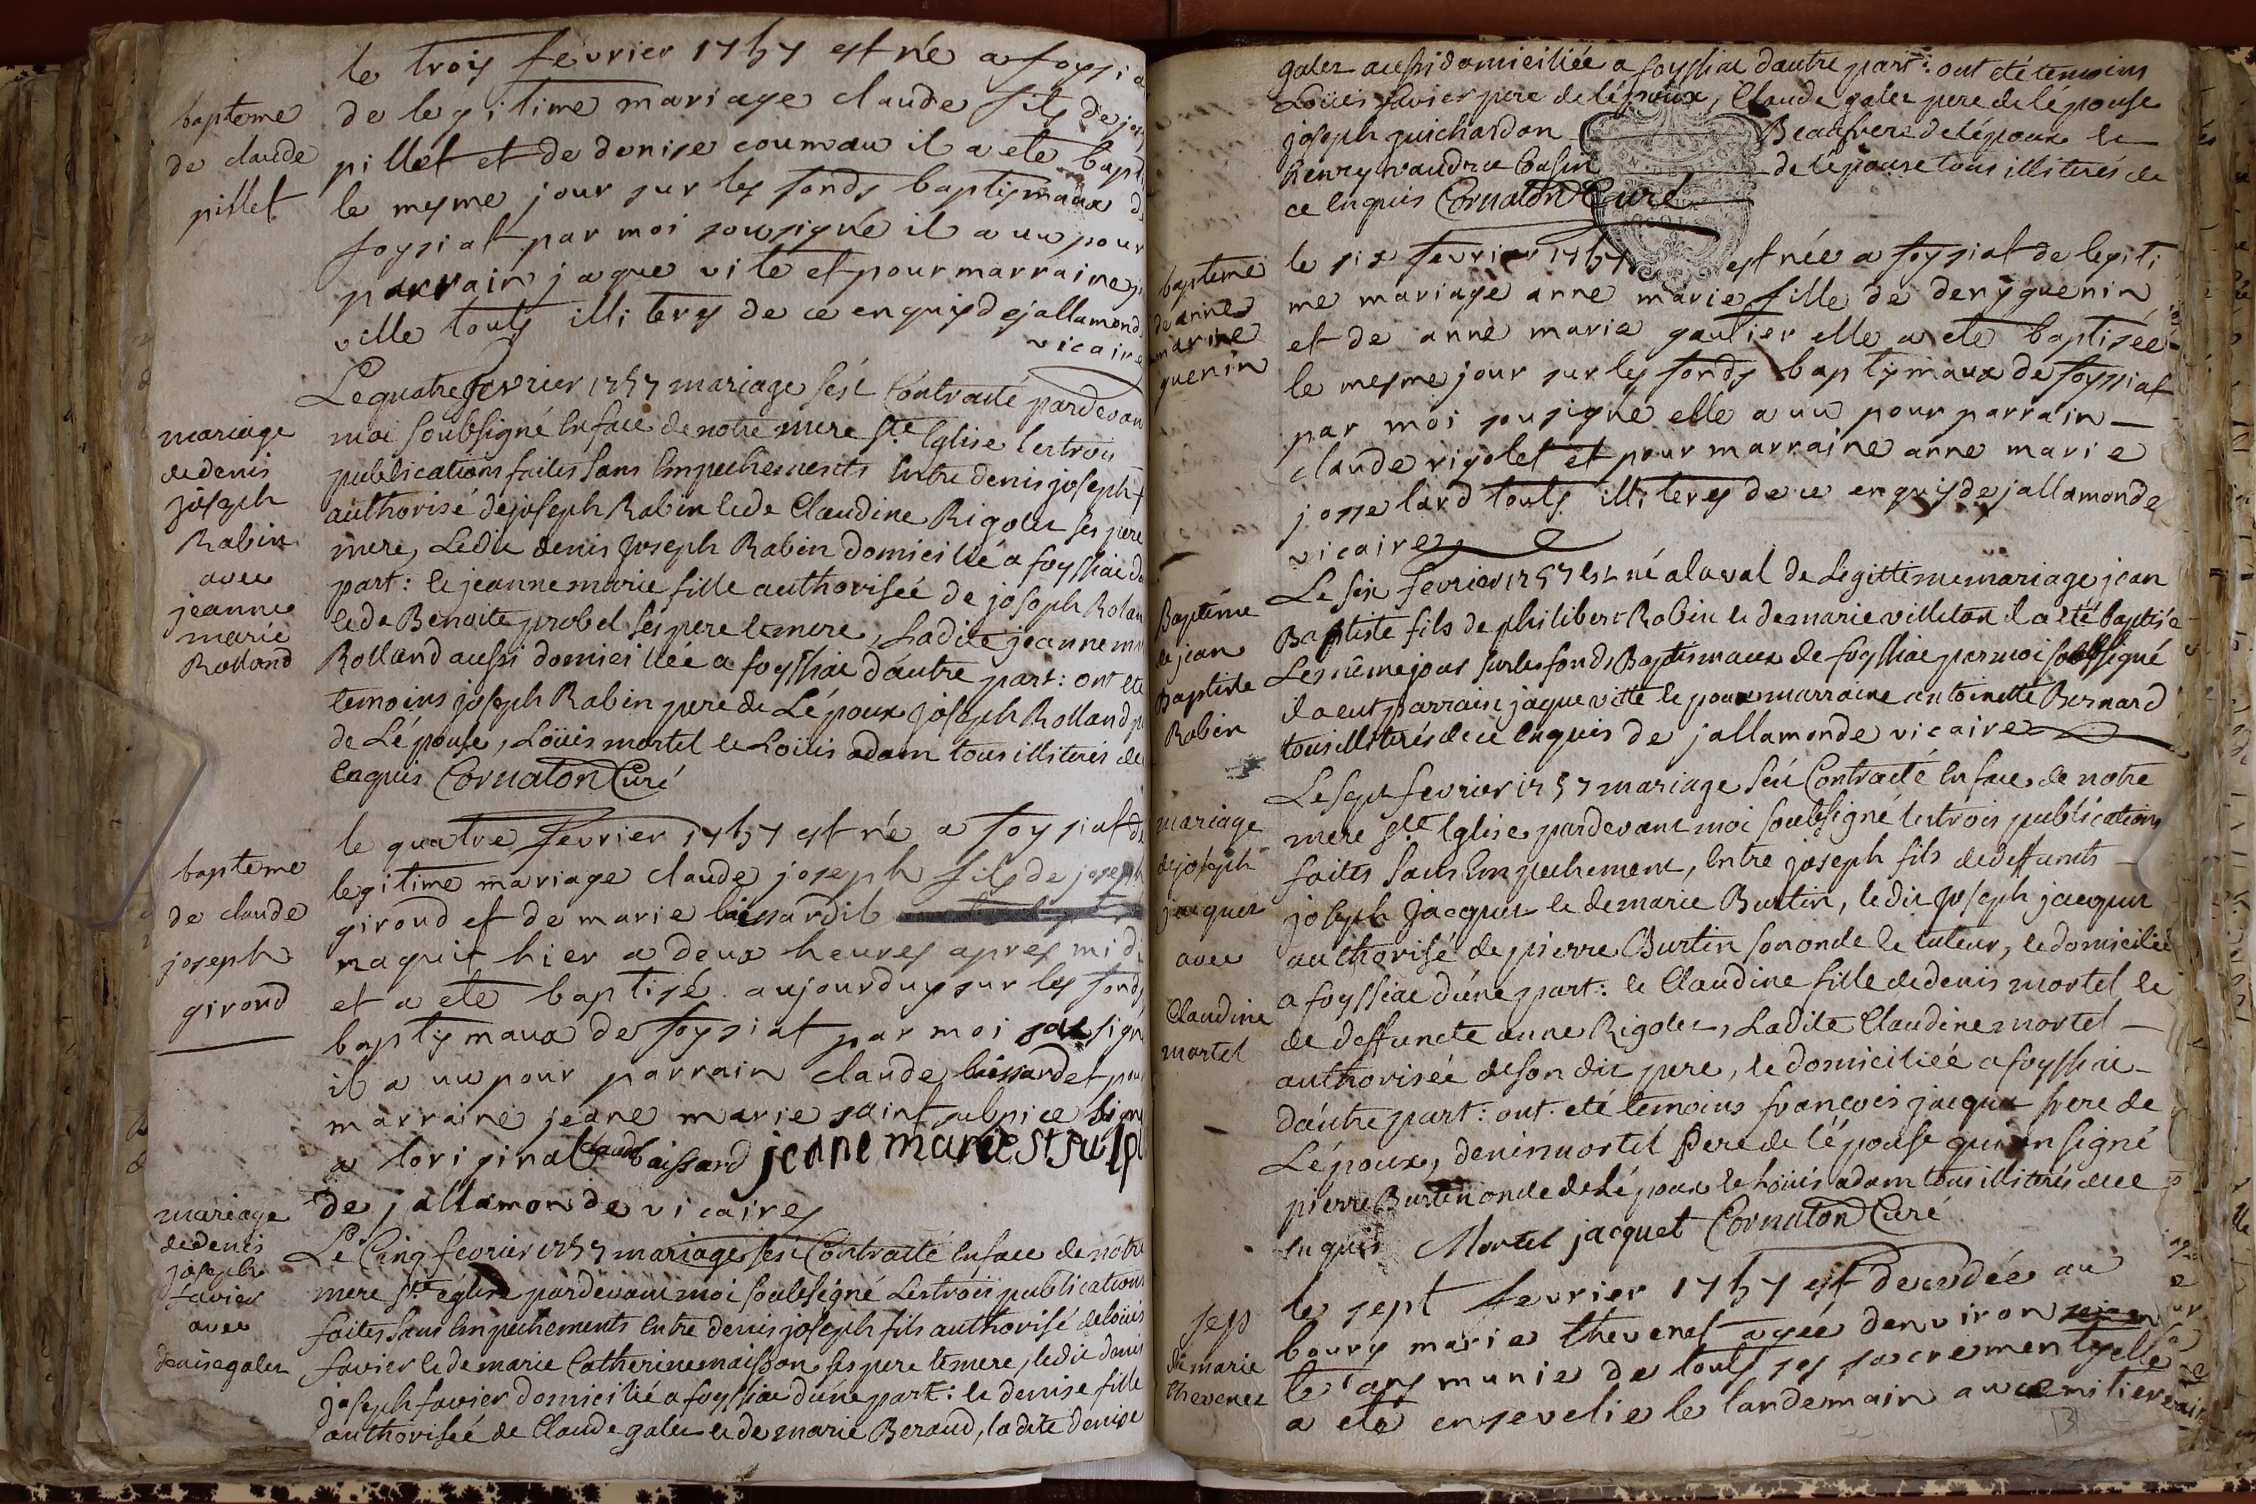 le troy fevrier 1757 est né a foysia
bapteme
de claude
pillet
de legitime mariage claude fils de jos
pillet et de denise coumau il a ete bapt
le mesme jour sur les fonds baptymaux d
foysiat par moi sousigné il a uu pour
parrain jaque vite et pour marraine
ville touts illiterés de ce enquis dejallamond
vicaire
Le quatre fevrier 1757 mariage s'est Contracté pardevan
mariage
de denis
joseph
Rabin
avec
jeanne
marie
Rolland
moi soubsigné En face de notre mere Ste Eglise les trois
publications faites sans Empechements Entre denis joseph f
authorisé de joseph Rabin et de Claudine Rigolet ses pere
mere, Ledit denis Joseph Rabin domicilié a foyssiac d
part: et jeanne marie fille authorisée de joseph Rolan
et de Benoite probel ses pere et mere, Ladite jeanne ma
Rolland aussi domiciliée a foyssiac d'autre part: ont ete
temoins joseph Rabin pere de L'époux joseph Rolland p
de L'épouse, Loüis mortel et Loüis adam tous illiterés de
Enquis Cornaton Curé
le quatre fevrier 1757 est né a foysiat de
bapteme
de claude
joseph
giroud
legitime mariage claude joseph fils de joseph
giroud et de marie baissard il
naquit hier a deux heures apres midi
et a ete baptisé aujourduy sur les fonds
baptymaux de foysiat par moi sousigné
il a uu pour parrain claude baissard et pour
marraine jeane marie saint sulpice signé
a loriginal Claude baissard jeane marie st sulp
de jallamonde vicaire
mariage
de denis
joseph
favier
avec
denise galet
Le Cinq fevrier 1757 mariage s'est Contracté En face de nôtre
mere Ste église pardevant moi soubsigné Les trois publications
faites sans Empechements Entre denis joseph fils authorisé de loüis
favier et de marie Catherine maisson ses pere et mere, ledit denis
joseph favier domicilié a foyssiac d'une part: et denise fille
authorisée de Claude galet et de marie Beraud, la dite denise
galet aussi domiciliée a foyssiac d'autre part: ont été temoins
Loüis favier pere de l'époux, Claude galet pere de l'épouse
joseph guichardon Beaufrere de l'époux et
henry vaudrce Cousin de l'épouse tous illiterés de
ce Enquis Cornaton Curé
baptême
de anne
marie
guenin
le six fevrier 1757 est née a foysiat de legiti
me mariage anne marie fille de deny guenin
et de anne maria gautier elle a ete baptisée
le mesme jour sur les fonds baptymaux de foysiat
par moi sousigné elle a uu pour parrain
claude rigolet et pour marraine anne marie
josselard touts illiterés de ce enquis de jallamonde
vicaire
Baptême
de jean
Baptiste
Robin
Le six fevrier 1757 est né a laval de Legittime mariage jean
Baptiste fils de philibert Robin et de marie villeton il a été baptisé
Le même jour sur les fonds Baptismaux de foyssiac par moi soubsigné
il a eut parrain jaque vitte et pour marraine antoinette Bernard
tous illiterés de ce Enquis de jallamonde vicaire
Le sept fevrier 1757 mariage s'est Contracté En face de notre
mariage
de joseph
jacquet
avec
Claudine
mortel
mere Ste Eglise pardevant moi soubsigné les trois publications
faites sans Empechement, Entre joseph fils de deffunts
joseph Jacquet et de marie Burtin, ledit Joseph jacquet
authorisé de pierre Burtin son oncle et tuteur, et domicilié
a foyssiac d'une part: et Claudine fille de denis mortel et
de deffuncte anne Rigolet, Ladite Claudine mortel
authorisée de son dit pere, et domiciliée a foyssiac
d'autre part: ont été temoins françois jacquet frere de
L'époux, denis mortel Pere de l'épouse qui on signé
pierre Burtin oncle de L'époux et Loüis adam tous illiterés de ce
Enquis Mortel jacquet Cornaton Curé
le sept fevrier 1757 est decedée au
sep
de marie
thevenet
bourg marie thevenet agée denviron
ans munie de touts ses sacrements elle
a ete ensevelie le landemain au cemitiere